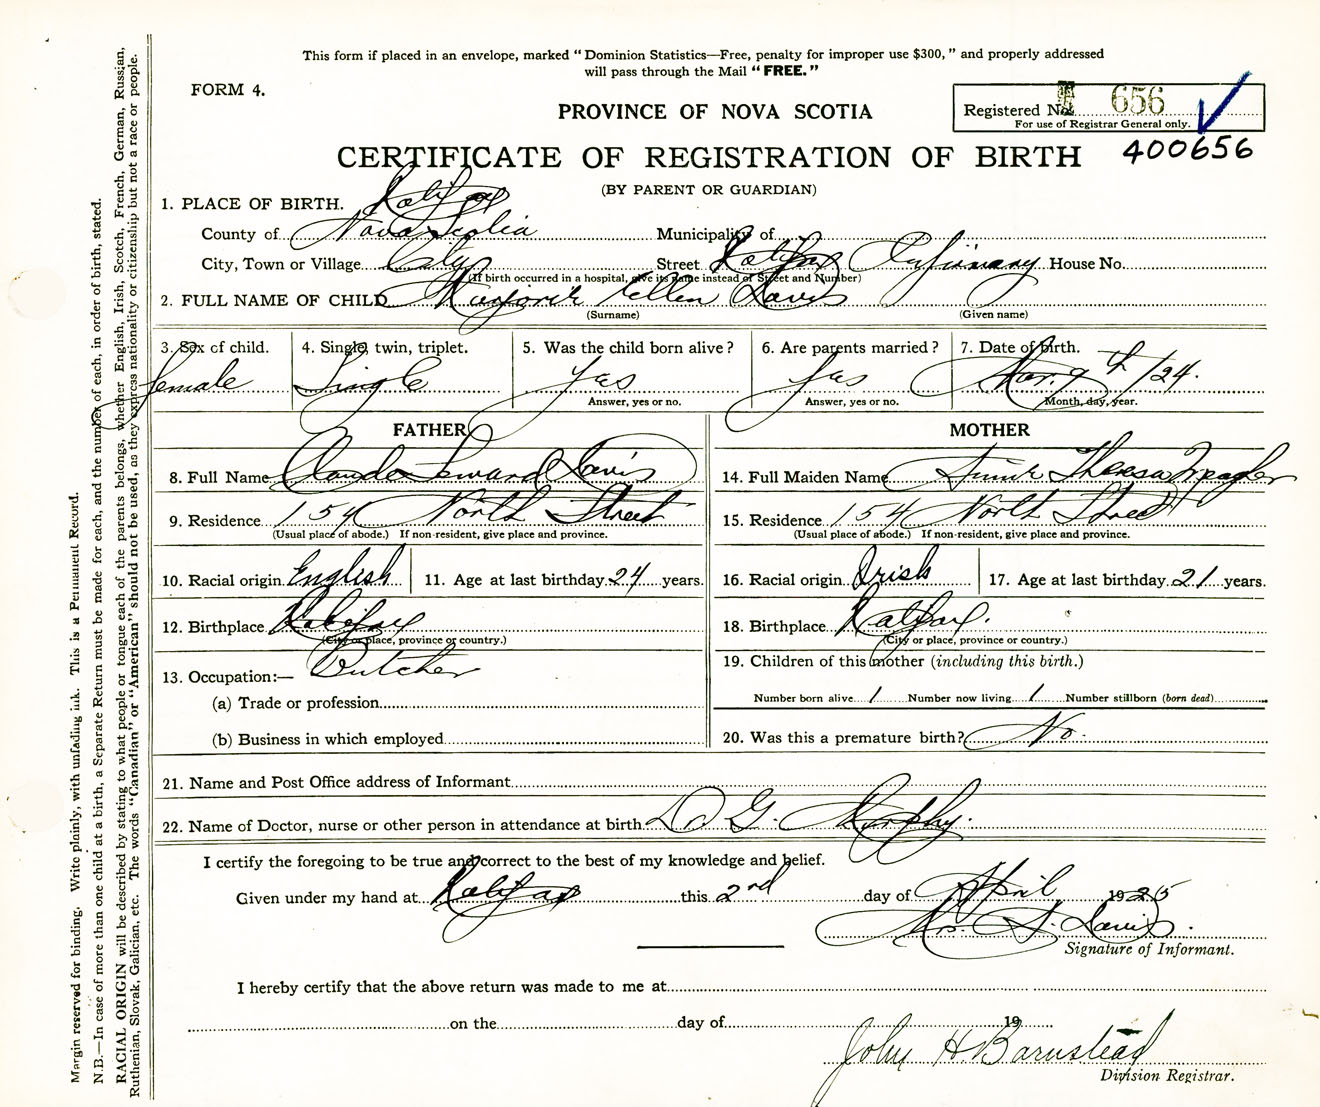 This form if placed in an envelope, marked "Dominion Statistics—Free, penalty for improper use $300," and properly addressed
will pass through the Mail "FREE."
FORM 4.
PROVINCE OF NOVA SCOTIA
Registered No. 656
For use of Registrar General only.
400656
CERTIFICATE OF REGISTRATION OF BIRTH
(BY PARENT OR GUARDIAN)
1. PLACE OF BIRTH. Halifax
County of Nova Scotia Municipality of
City, Town or Village City Street Halifax Infirmary House No.
(If birth occurred in a hospital, give its name instead of Street and Number)
2. FULL NAME OF CHILD Marjorie Ellen Davis
(Surname) (Given name)
3. Sex of child. 4. Single, twin, triplet. 5. Was the child born alive? 6. Are parents married? 7. Date of birth.
female Single yes yes Mar. 9th /24.
Answer, yes or no. Answer, yes or no. Month, day, year.
FATHER MOTHER
8. Full Name Claude Seward Davis 14. Full Maiden Name Theresa Meagher
9. Residence 154 North Street 15. Residence 154 North Street
(Usual place of abode.) If non-resident, give place and province. (Usual place of abode.) If non-resident, give place and province.
10. Racial origin English 11. Age at last birthday 24 years. 16. Racial origin Irish 17. Age at last birthday 21 years.
12. Birthplace Halifax 18. Birthplace Halifax.
(City or place, province or country.) (City or place, province or country.)
13. Occupation:— Butcher 19. Children of this mother (including this birth.)
(a) Trade or profession Number born alive 1 Number now living 1 Number stillborn (born dead)
(b) Business in which employed 20. Was this a premature birth? No.
21. Name and Post Office address of Informant
22. Name of Doctor, nurse or other person in attendance at birth Dr G. Murphy.
I certify the foregoing to be true and correct to the best of my knowledge and belief.
Given under my hand at Halifax this 2nd day of April 1925
Mrs. Davis.
Signature of Informant.
I hereby certify that the above return was made to me at
on the day of 19
John H. Barnstead
Division Registrar.
Margin reserved for binding. Write plainly, with unfading ink. This is a Permanent Record.
N.B.—In case of more than one child at a birth, a Separate Return must be made for each, and the number of each, in order of birth, stated.
RACIAL ORIGIN will be described by stating to what people or tongue each of the parents belongs, whether English, Irish, Scotch, French, German, Russian,
Ruthenian, Slovak, Galician, etc. The words "Canadian" or "American" should not be used, as they express nationality or citizenship but not a race or people.